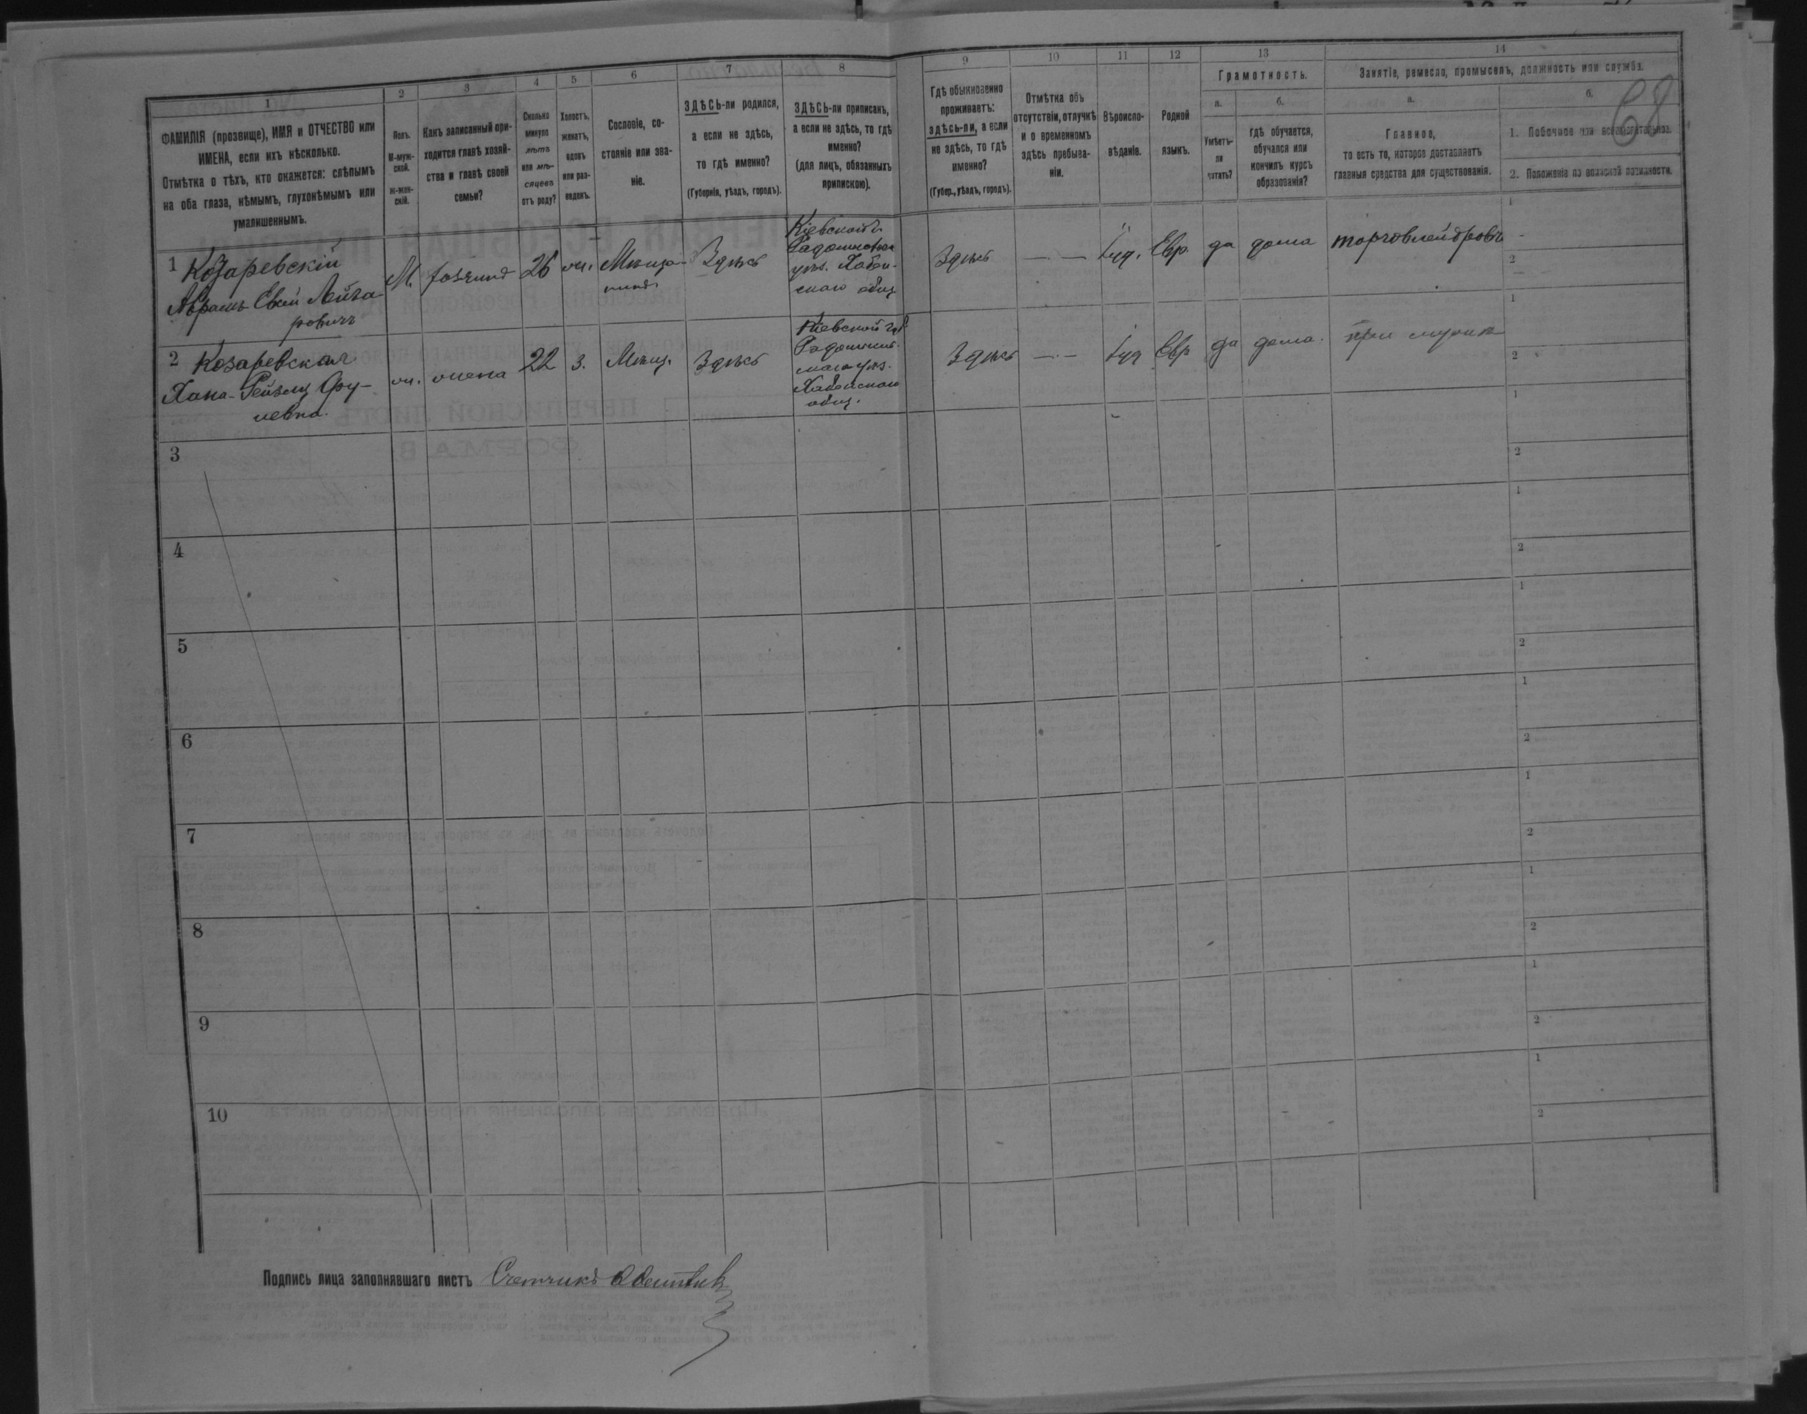 1
2
3
4
5
6
7
8
9
10
11
12
13
14
ФАМИЛІЯ (прозвище), ИМЯ и ОТЧЕСТВО или
ИМЕНА, если ихъ нѣсколько.
Отмѣтка о тѣхъ, кто окажется: слѣпымъ
на оба глаза, нѣмымъ, глухонѣмымъ или
умалишеннымъ.
Полъ.
М-муж-
ской.
Ж-жен-
скій.
Какъ записанный при-
ходится главѣ хозяй-
ства и главѣ своей
семьи?
Сколько
минуло
лѣтъ
или мѣ-
сяцевъ
отъ роду?
Холостъ,
женатъ,
вдовъ
или раз-
веденъ.
Сословіе, со-
стояніе или зва-
ніе.
ЗДѢСЬ-ли родился,
а если не здѣсь,
то гдѣ именно?
(Губернія, уѣздъ, городъ).
ЗДѢСЬ-ли приписанъ,
а если не здѣсь, то гдѣ
именно?
(для лицъ, обязанныхъ
припискою).
Гдѣ обыкновенно
проживаетъ:
здѣсь-ли, а если
не здѣсь, то гдѣ
именно?
(Губер., уѣздъ, городъ).
Отмѣтка объ
отсутствіи, отлучкѣ
и о временномъ
здѣсь пребыва-
ніи.
Вѣроиспо-
вѣданіе.
Родной
языкъ.
Грамотность.
а.
б.
Умѣетъ-
ли
читать?
гдѣ обучается,
обучался или
кончилъ курсъ
образованія?
Занятіе, ремесло, промыселъ, должность или служба.
а.
б.
Главное,
то есть то, которое доставляетъ
главныя средства для существованія.
1. Побочное или вспомогательное.
2. Положеніе по воинской повинности.
68
1 Козаревскій
Аврамъ Евсій Лейза
ровичъ
М.
хозяинъ
26
ж.
Мѣща-
нинъ
Здѣсь
Кіевской г.
Радомысльск
уѣз. Хабен-
скаго общ
Здѣсь
— —
Іуд.
Евр
да
дома
торговлей дровъ
1
2
2 Козаревская
Хана-Рейзля Сру-
левна.
ж.
жена
22
з.
Мѣщ.
Здѣсь
Кіевской губ
Радомысль-
скаго уѣз.
Хабенскаго
общ.
Здѣсь
— —
Іуд
Евр
да
дома.
при мужѣ
1
2
3
1
2
4
1
2
5
1
2
6
1
2
7
1
2
8
1
2
9
1
2
10
1
2
Подпись лица заполнявшаго листъ Счетчикъ